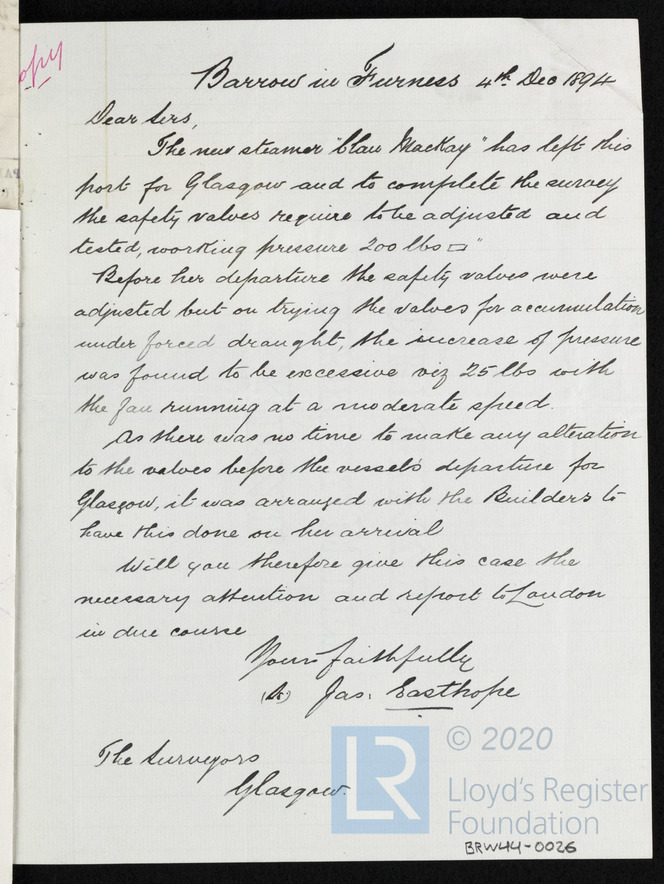 Copy
Barrow in Furness 4th Dec 1894
Dear Sirs,
The new steamer "Clan MacKay" has left this
port for Glasgow and to complete the survey
the safety valves require to be adjusted and
tested, working pressure 200 lbs □"
Before her departure the safety valves were
adjusted but on trying the valves for accumulation
under forced draught, the increase of pressure
was found to be excessive viz 25 lbs with
the fan running at a moderate speed.
As there was no time to make any alteration
to the valves before the vessel's departure for
Glasgow, it was arranged with the Builders to
have this done on her arrival
Will you therefore give this case the
necessary attention and report to London
in due course
Yours faithfully
(S) Jas. Easthope
The Surveyors
Glasgow.
LR
© 2020
Lloyd's Register
Foundation
BRW44-0026